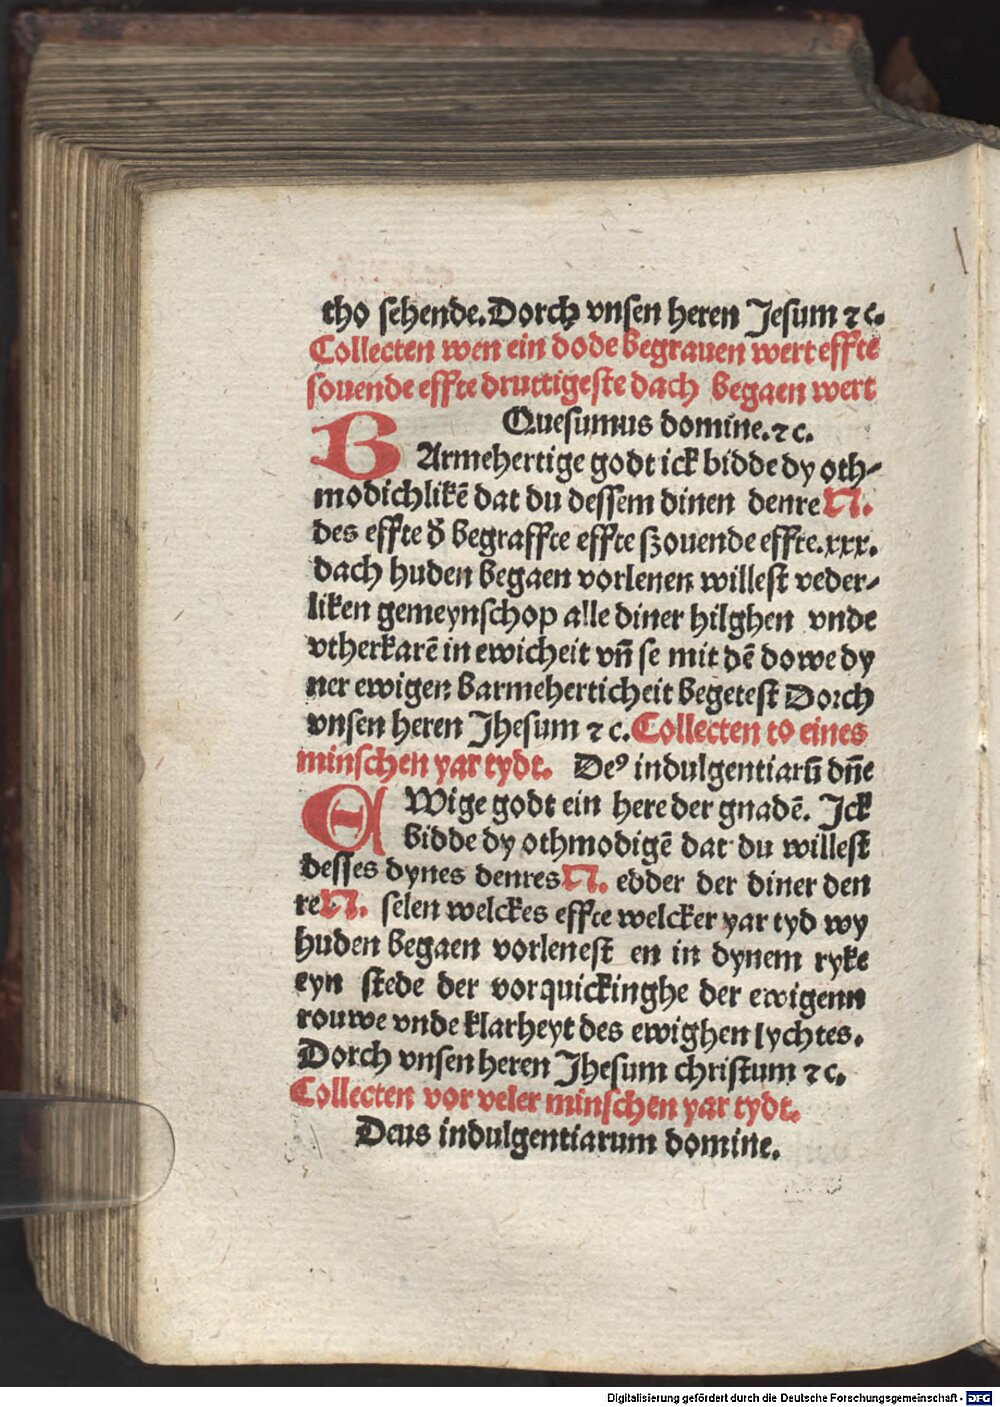 tho sehende. Dorch vnsen heren Jesum ⁊c.
Collecten wen ein dode begrauen wert effte
souende effte druttigeste dach begaen wert
Quesumus domine. ⁊c.
BArmehertige godt ick bidde dy oth-
modichlikē dat du dessem dinen denre N.
des effte d̕ begraffte effte szouende effte .xxx.
dach huden begaen vorlenen willest veder-
liken gemeynschop alle diner hilghen vnde
vtherkarē in ewicheit vn̄ se mit dē dowe dy
ner ewigen barmeherticheit begetest Dorch
vnsen heren Jhesum ⁊c. Collecten to eines
minschen yar tydt. Deꝰ indulgentiarū dn̄e
EWige godt ein here der gnadē. Ick
bidde dy othmodigē dat du willest
desses dynes denres N. edder der diner den
re N. selen welckes effte welcker yar tyd wy
huden begaen vorlenest en in dynem ryke
eyn stede der vorquickinghe der ewigenn
rouwe vnde klarheyt des ewighen lychtes.
Dorch vnsen heren Jhesum christum ⁊c.
Collecten vor veler minschen yar tydt.
Deus indulgentiarum domine.
Digitalisierung gefördert durch die Deutsche Forschungsgemeinschaft - DFG